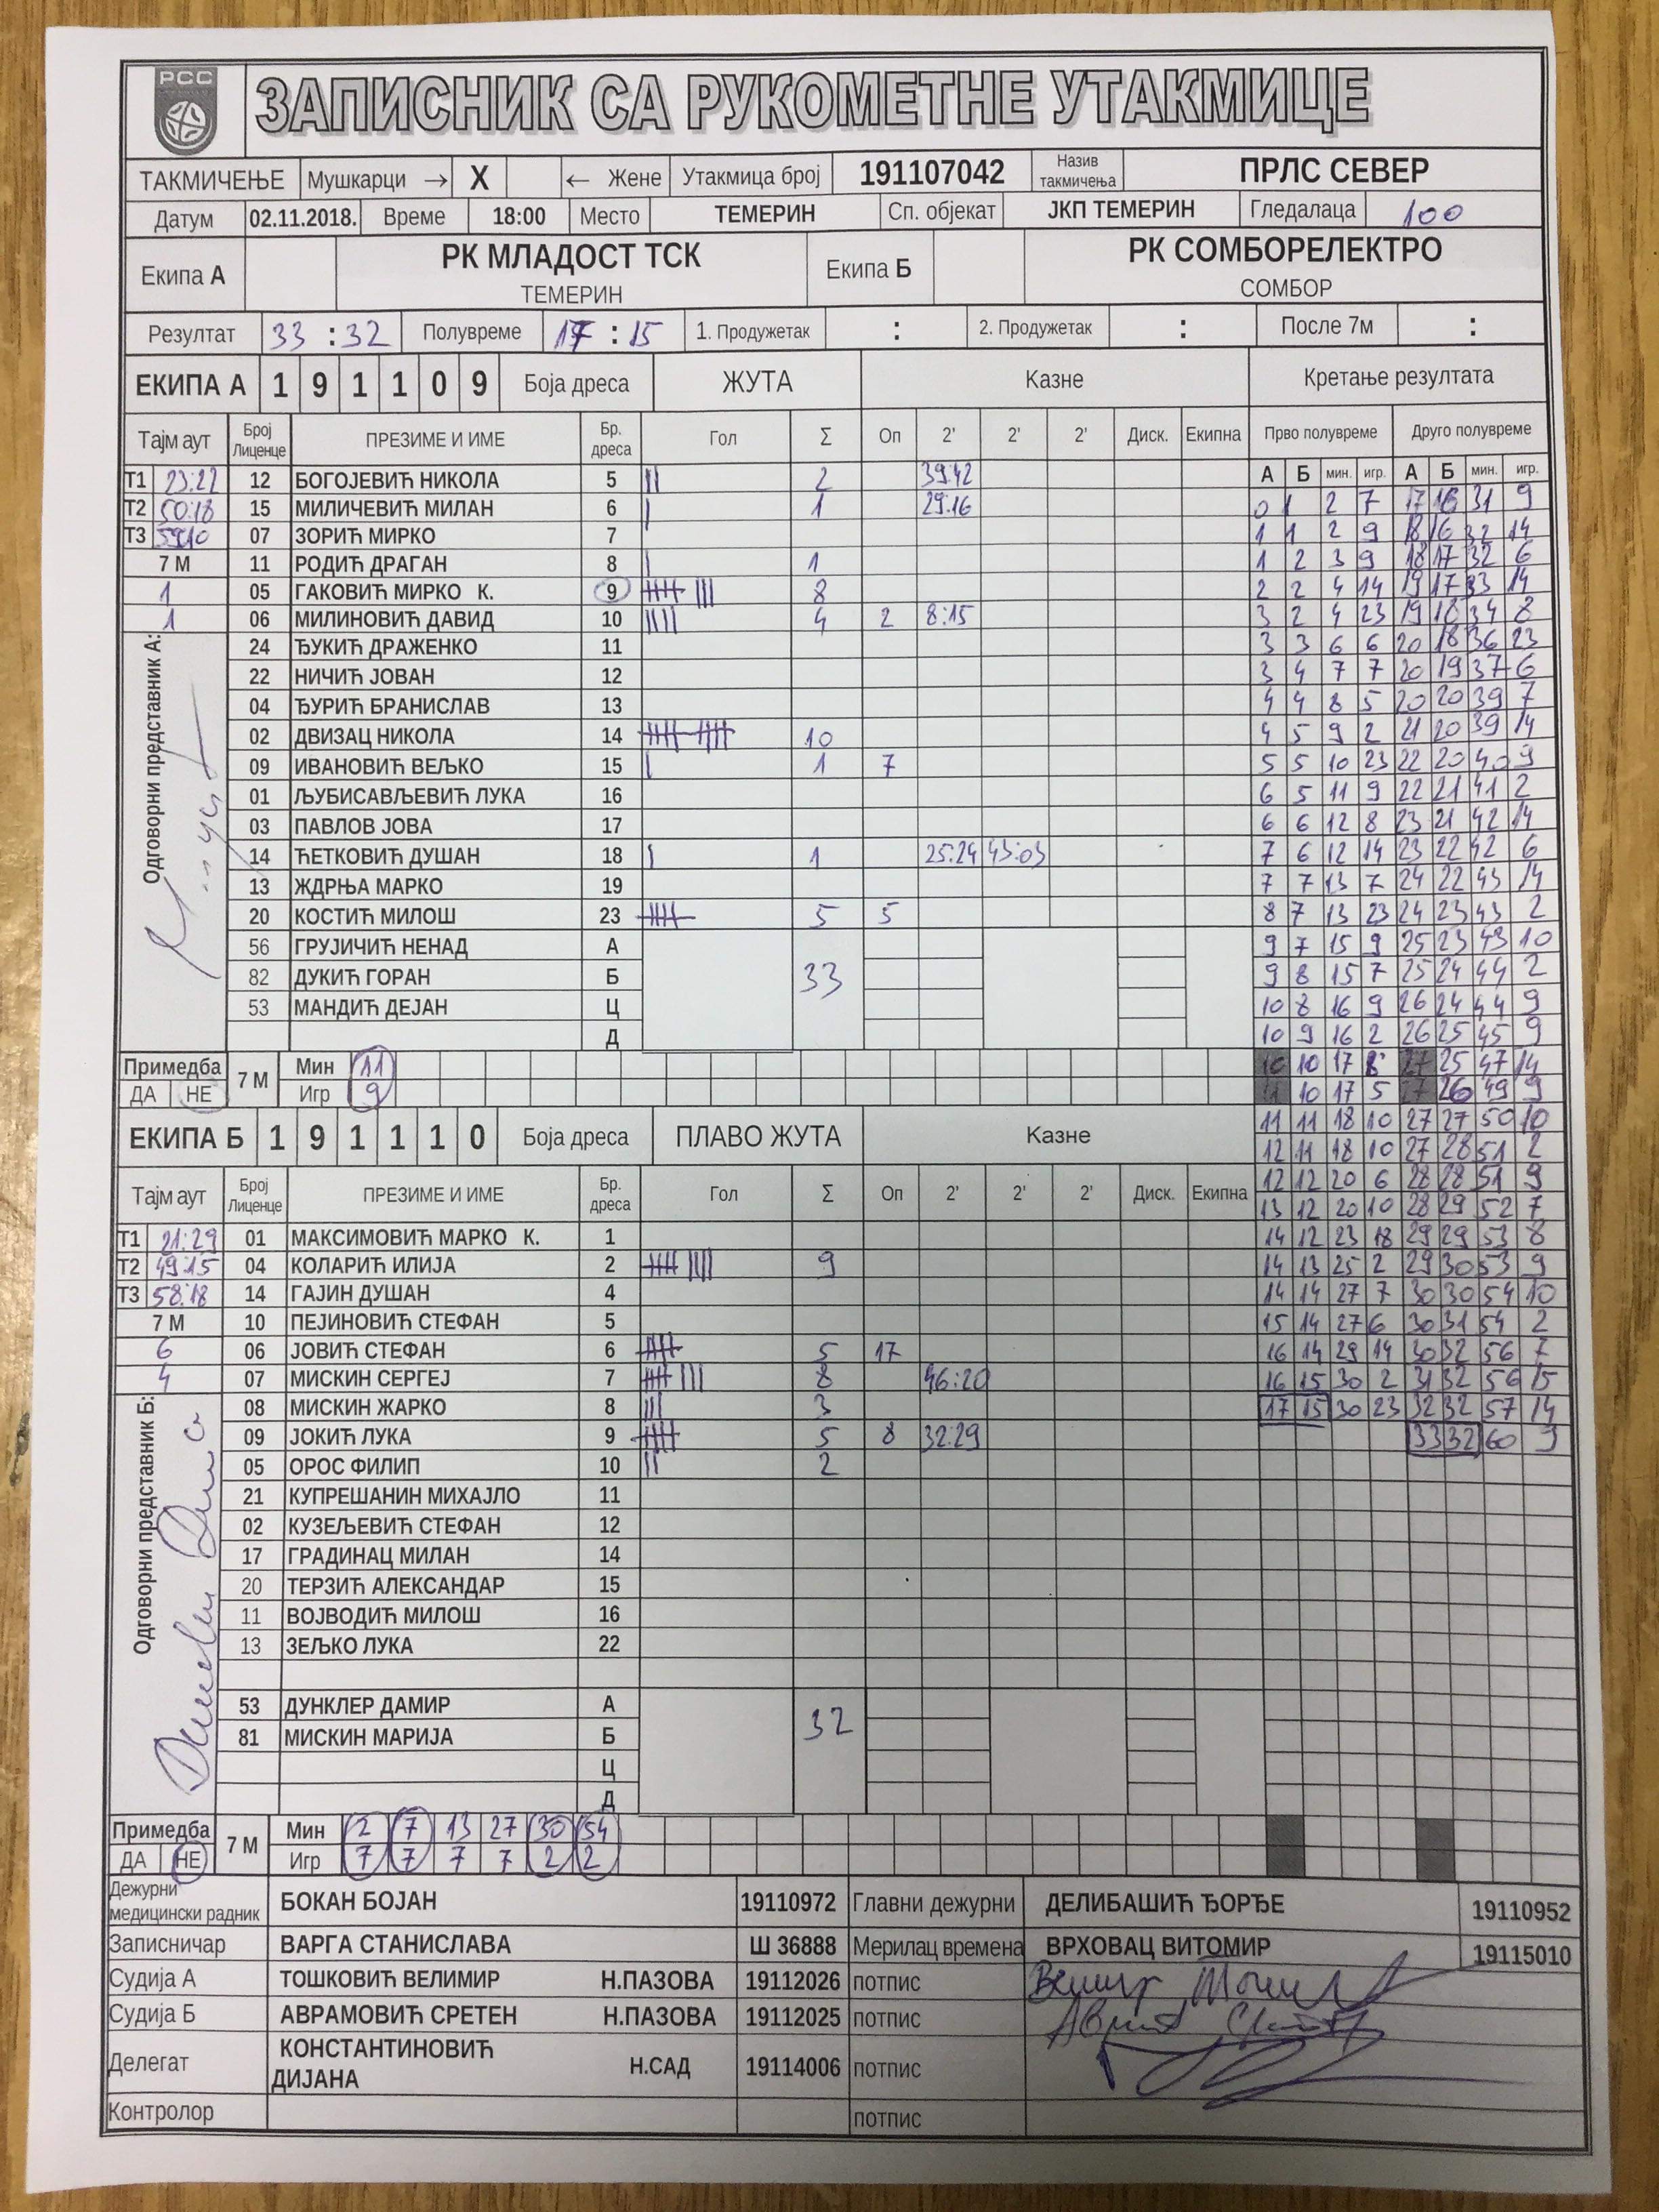 РСС
ЗАПИСНИК СА РУКОМЕТНЕ УТАКМИЦЕ
ТАКМИЧЕЊЕ Мушкарци → X ← Жене Утакмица број 191107042 Назив такмичења ПРЛС СЕВЕР
Датум 02.11.2018. Време 18:00 Место ТЕМЕРИН Сп. објекат ЈКП ТЕМЕРИН Гледалаца 100
Екипа А РК МЛАДОСТ ТСК Екипа Б РК СОМБОРЕЛЕКТРО
ТЕМЕРИН СОМБОР
Резултат 33 : 32 Полувреме 17 : 15 1. Продужетак : 2. Продужетак : После 7м :
ЕКИПА А 1 9 1 1 0 9 Боја дреса ЖУТА Казне Кретање резултата
Тајм аут Број Лиценце ПРЕЗИМЕ И ИМЕ Бр. дреса Гол Σ Оп 2' 2' 2' Диск. Екипна Прво полувреме Друго полувреме
А Б мин. игр. А Б мин. игр.
Т1 23:27 12 БОГОЈЕВИЋ НИКОЛА 5 || 2 39:42
0 1 2 7 17 16 31 9
Т2 50:18 15 МИЛИЧЕВИЋ МИЛАН 6 | 1 29:16
1 1 2 9 18 16 32 14
Т3 59:10 07 ЗОРИЋ МИРКО 7
1 2 3 9 18 17 32 6
7 М 11 РОДИЋ ДРАГАН 8 | 1
2 2 4 14 19 17 33 14
1 05 ГАКОВИЋ МИРКО К. 9 |||| ||| 8
3 2 4 23 19 18 34 8
1 06 МИЛИНОВИЋ ДАВИД 10 |||| 4 2 8:15
3 3 6 6 20 18 36 23
Одговорни представник А:
24 ЂУКИЋ ДРАЖЕНКО 11
3 4 7 7 20 19 37 6
22 НИЧИЋ ЈОВАН 12
4 4 8 5 20 20 39 7
04 ЂУРИЋ БРАНИСЛАВ 13
4 5 9 2 21 20 39 14
02 ДВИЗАЦ НИКОЛА 14 |||| |||| 10
5 5 10 23 22 20 40 9
09 ИВАНОВИЋ ВЕЉКО 15 | 1 7
6 5 11 9 22 21 41 2
01 ЉУБИСАВЉЕВИЋ ЛУКА 16
6 6 12 8 23 21 42 14
03 ПАВЛОВ ЈОВА 17
7 6 12 14 23 22 42 6
14 ЋЕТКОВИЋ ДУШАН 18 | 1 25:24 43:03
7 7 13 7 24 22 43 14
13 ЖДРЊА МАРКО 19
8 7 13 23 24 23 43 2
20 КОСТИЋ МИЛОШ 23 |||| 5 5
9 7 15 9 25 23 43 10
56 ГРУЈИЧИЋ НЕНАД А
9 8 15 7 25 24 44 2
82 ДУКИЋ ГОРАН Б 33
10 8 16 9 26 24 44 9
53 МАНДИЋ ДЕЈАН Ц
10 9 16 2 26 25 45 9
Д
10 10 17 8 27 25 47 14
Примедба 7 М Мин 11
11 10 17 5 27 26 49 9
ДА НЕ Игр 9
11 11 18 10 27 27 50 10
ЕКИПА Б 1 9 1 1 1 0 Боја дреса ПЛАВО ЖУТА Казне
12 11 18 10 27 28 51 2
12 12 20 6 28 28 51 9
Тајм аут Број Лиценце ПРЕЗИМЕ И ИМЕ Бр. дреса Гол Σ Оп 2' 2' 2' Диск. Екипна
13 12 20 10 28 29 52 7
Т1 21:29 01 МАКСИМОВИЋ МАРКО К. 1
14 12 23 18 29 29 53 8
Т2 49:15 04 КОЛАРИЋ ИЛИЈА 2 |||| |||| 9
14 13 25 2 29 30 53 9
Т3 58:18 14 ГАЈИН ДУШАН 4
14 14 27 7 30 30 54 10
7 М 10 ПЕЈИНОВИЋ СТЕФАН 5
15 14 27 6 30 31 54 2
6 06 ЈОВИЋ СТЕФАН 6 |||| 5 17
16 14 29 14 30 32 56 7
4 07 МИСКИН СЕРГЕЈ 7 |||| ||| 8 46:20
16 15 30 2 31 32 56 15
Одговорни представник Б:
08 МИСКИН ЖАРКО 8 ||| 3
17 15 30 23 32 32 57 14
09 ЈОКИЋ ЛУКА 9 |||| 5 8 32:29
33 32 60 9
05 ОРОС ФИЛИП 10 || 2
21 КУПРЕШАНИН МИХАЈЛО 11
02 КУЗЕЉЕВИЋ СТЕФАН 12
17 ГРАДИНАЦ МИЛАН 14
20 ТЕРЗИЋ АЛЕКСАНДАР 15
11 ВОЈВОДИЋ МИЛОШ 16
13 ЗЕЉКО ЛУКА 22
53 ДУНКЛЕР ДАМИР А
81 МИСКИН МАРИЈА Б 32
Ц
Д
Примедба 7 М Мин 2 7 13 27 30 54
ДА НЕ Игр 7 7 7 7 2 2
Дежурни медицински радник БОКАН БОЈАН 19110972 Главни дежурни ДЕЛИБАШИЋ ЂОРЂЕ 19110952
Записничар ВАРГА СТАНИСЛАВА Ш 36888 Мерилац времена ВРХОВАЦ ВИТОМИР 19115010
Судија А ТОШКОВИЋ ВЕЛИМИР Н.ПАЗОВА 19112026 потпис
Судија Б АВРАМОВИЋ СРЕТЕН Н.ПАЗОВА 19112025 потпис
Делегат КОНСТАНТИНОВИЋ ДИЈАНА Н.САД 19114006 потпис
Контролор потпис